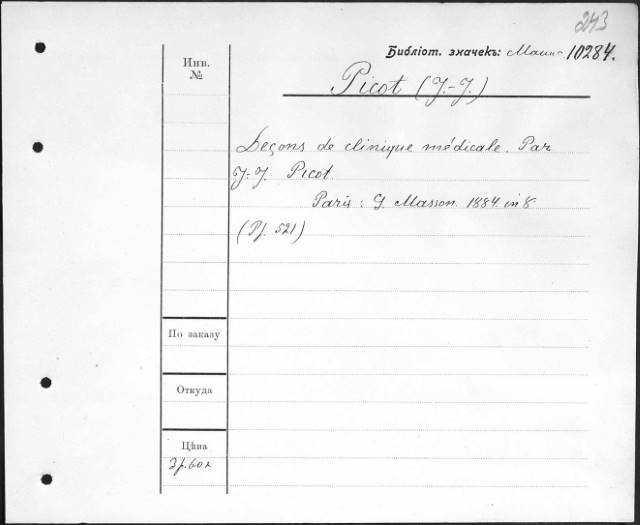 243
Библіот. значекъ: Маши. 10284.
Инв.
№
Picot (J.-J.)
Leçons de clinique médicale. Par
J.-J. Picot
Paris : G. Masson. 1884. in 8
(Pf. 521)
По заказу
Откуда
Цѣна
3 р. 60 к